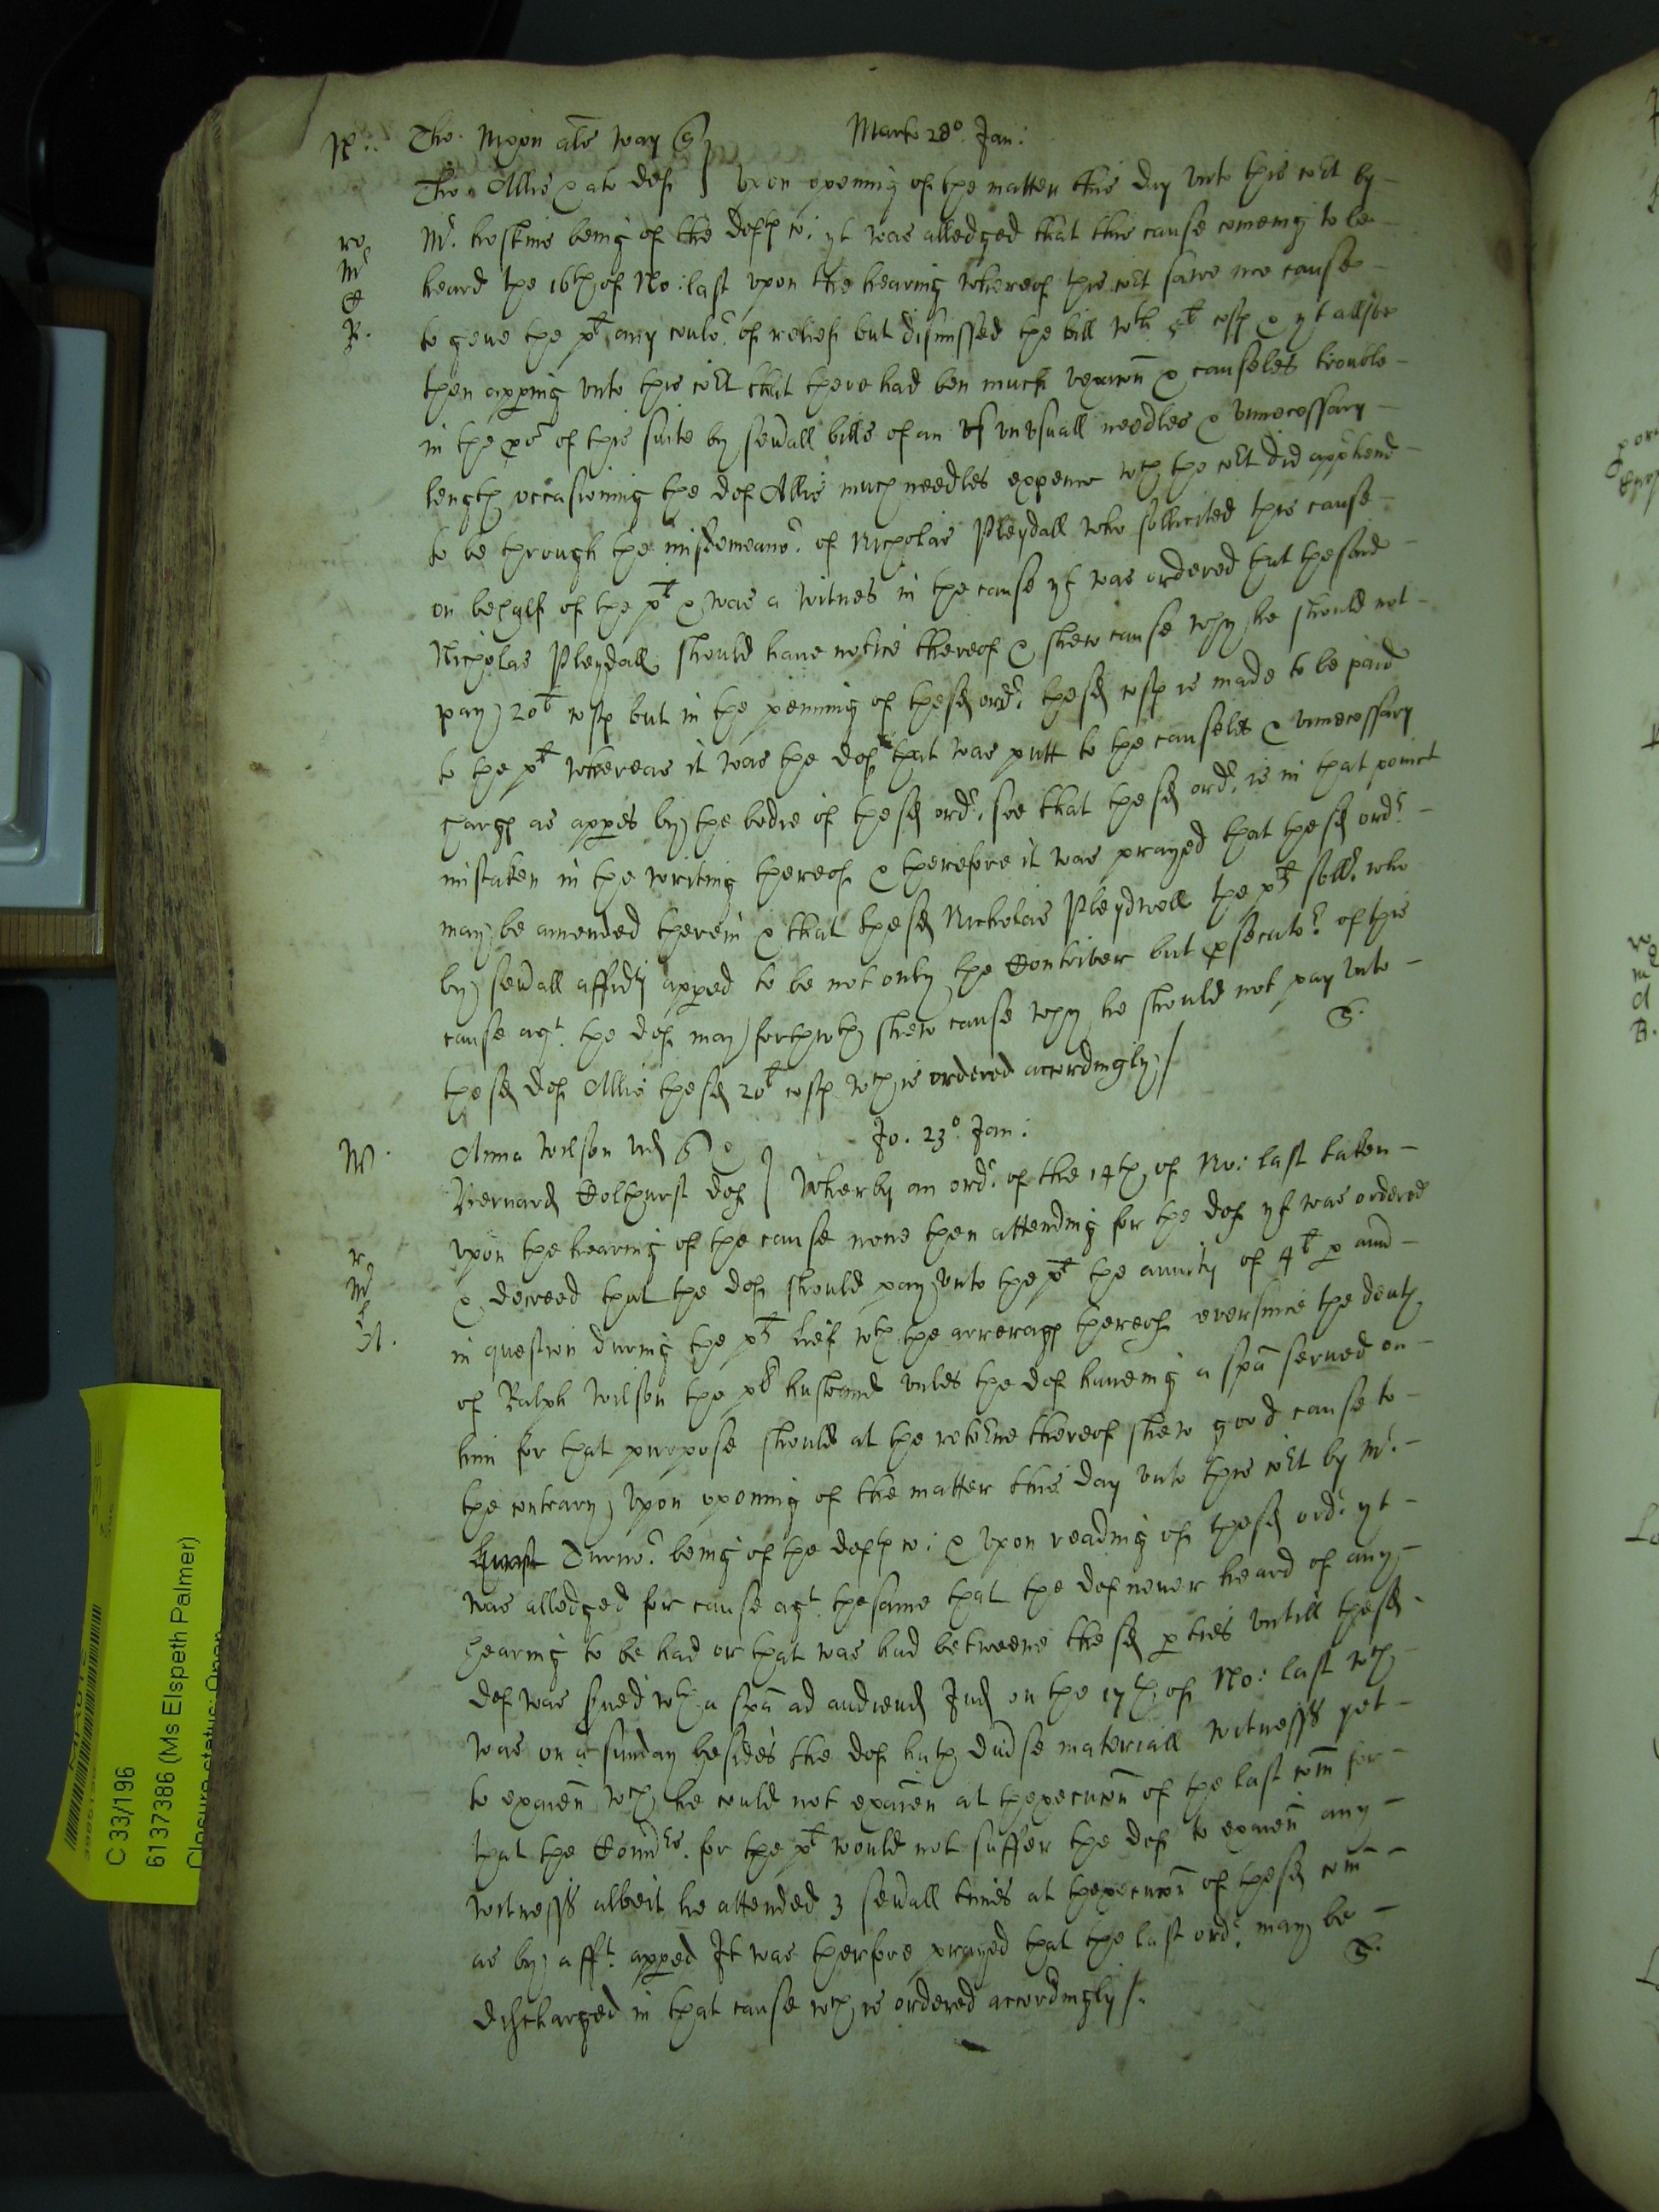 Tho. Moon als way q
Marte 28o. Jan:
Tho. Allis & als def } Upon opening of the matter this day unto this cort by
Mr. hoskins being of the deftes co: yt was alledged that this cause comeing to be
heard the 16th of No: last upon the hearing whereof this cort sawe noe cause
to geve the plt any coulor. of relief but dismissed the bill wth 5l costes & yt allsoe
then apping unto this cort that there had ben much vexacon & causeles trouble
in the pros of this suite by sevall bills of an us unusuall needles & unnecessary
length occasioning the def Allis much needles expence wch the cort did apphend
to be through the misdemeanor. of Nicholas Pleydall who sollicited this cause
on behalf of the plt & was a witnes in the cause yt was ordered that the said
Nicholas Pleydall should have notice thereof & shew cause why he should not
pay 20l costes but in the penning of the sd ordr. the sd costes is made to be paid
to the plt whereas it was the deft that was putt to the causeles & unnecessary
charge as appes by the bodie of the sd ordr. soe that the sd ordr. is in that poinct
mistaken in the writing thereof & therefore it was prayed that the sd ordr.
may be amended therein & that the sd Nicholas Pleydwell the plts sollr. who
by sevall affidts apped to be not only the Contriver but psecutor. of this
cause agt. the def may forthwth shew cause why he should not pay unto
the sd def Allis the sd 20l costes wch is ordered accordingly /
Jo. 23o. Jan:
Anna Wilson vid q
Bernard Colthurst def } Wherby an ordr. of the 14th of No: last taken
upon the hearing of the cause none then attending for the def yt was ordered
& decreed that the def should pay unto the plt the anuity of 4l p ann
in question during the plts lief wth the arrerages thereof ever since the death
of Ralph Wilson the plts husband unles the def haveing a spa served on
him for that purpose should at the retorne thereof shew good cause to
the contrary Upon opening of the matter this day unto this cort by Mr.
Turnor. being of the deftes co: & upon reading of the sd ordr. yt
was alledged for cause agt. the same that the def never heard of any
hearing to be had or that was had betweene the sd pties untill the sd
def was sved wth a spa ad audiend Jud on the 17th of No: last wch
was on a sunday besides the def hath divse materiall witnesses yet
to examen wch he could not examen at thexecucon of the last com for
that the Comrs. for the plt would not suffer the def to examen any
witnesses albeit he attended 3 sevall times at thexecucon of the sd com
as by afft. apped It was therfore prayed that the last ordr. may be
discharged in that cause wch is ordered accordingly /.
C 33/196
6137386 (Ms Elspeth Palmer)
Closure status: Open